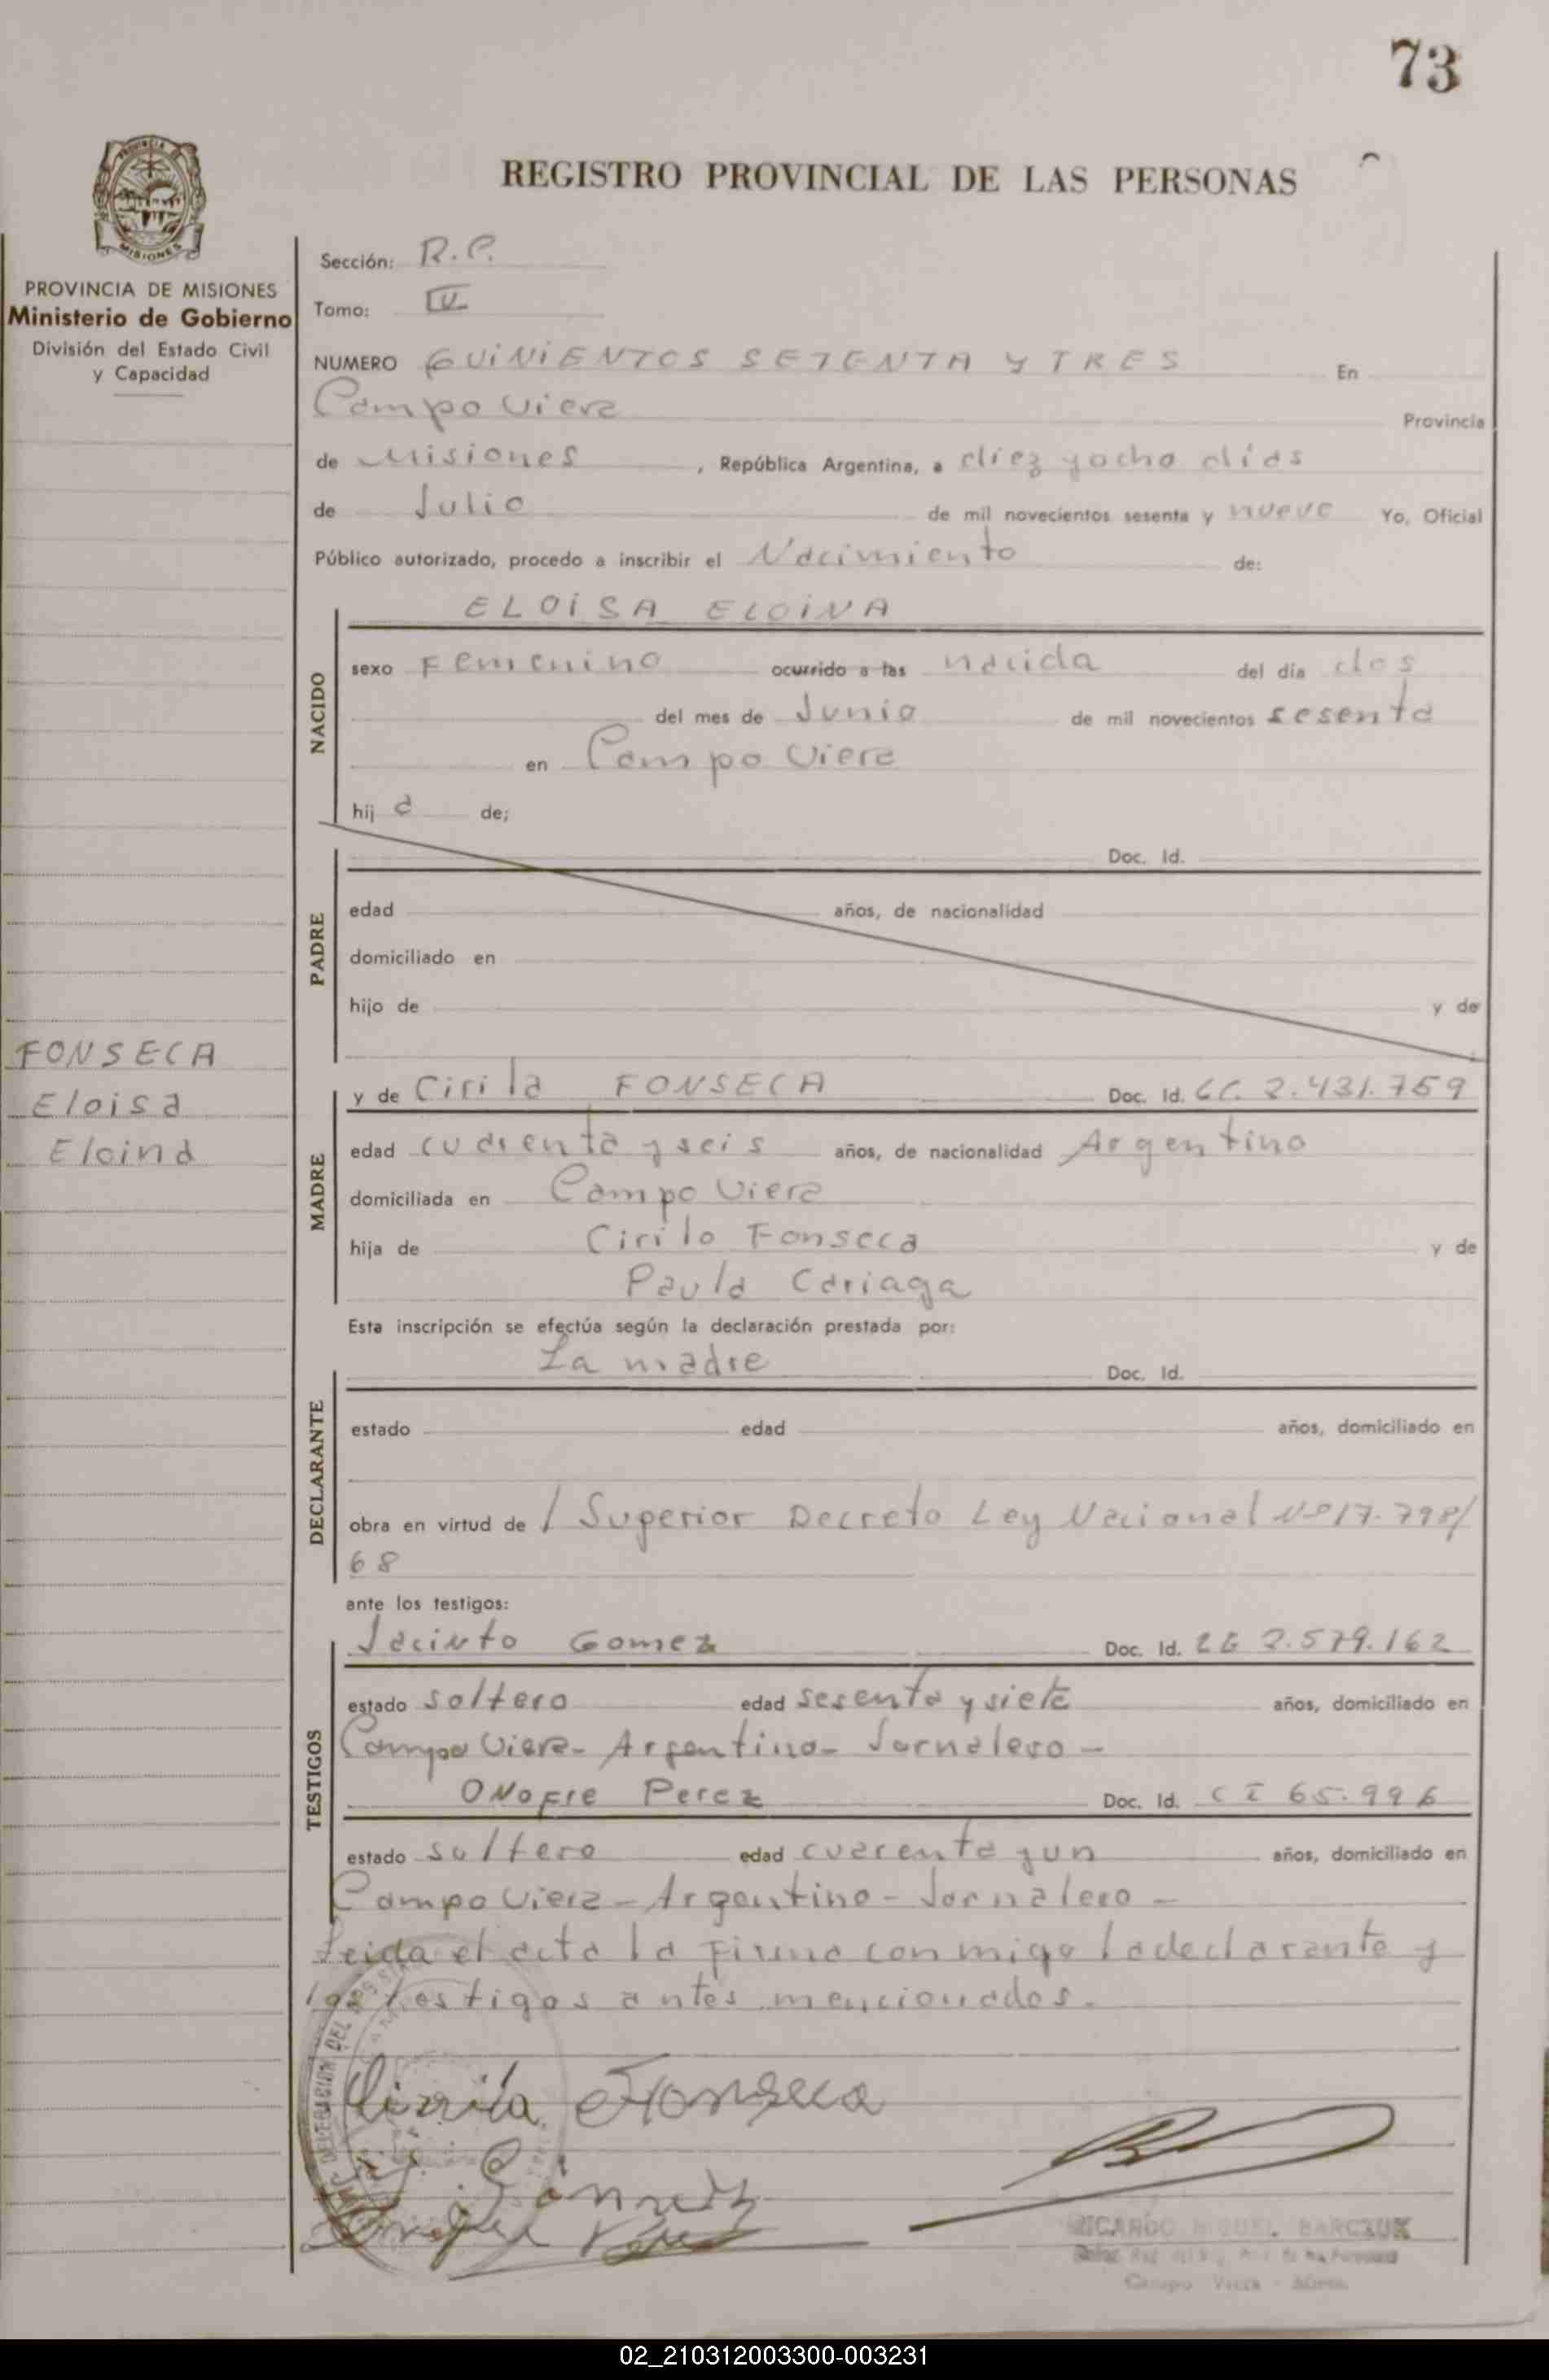 73
REGISTRO PROVINCIAL DE LAS PERSONAS
PROVINCIA DE MISIONES
Ministerio de Gobierno
División del Estado Civil
y Capacidad
Sección: R.P.
Tomo: IV
NUMERO QUINIENTOS SETENTA Y TRES En
Campo Viera Provincia
de Misiones, República Argentina, a diez y ocho días
de Julio de mil novecientos sesenta y nueve Yo, Oficial
Público autorizado, procedo a inscribir el Nacimiento de:
NACIDO
ELOISA ELOINA
sexo Femenino ocurrido a las nacida del día dos
del mes de Junio de mil novecientos sesenta
en Campo Viera
hij a de;
PADRE
Doc. Id.
edad años, de nacionalidad
domiciliado en
hijo de y de
FONSECA
Eloisa
Eloina
MADRE
y de Cirila FONSECA Doc. Id. LC. 2.431.759
edad cuarenta y seis años, de nacionalidad Argentina
domiciliada en Campo Viera
hija de Cirilo Fonseca y de
Paula Cariaga
Esta inscripción se efectúa según la declaración prestada por:
DECLARANTE
La madre Doc. Id.
estado edad años, domiciliado en
obra en virtud de / Superior Decreto Ley Nacional Nº 17.798/
68
ante los testigos:
TESTIGOS
Jacinto Gomez Doc. Id. LE 2.579.162
estado soltero edad sesenta y siete años, domiciliado en
Campo Viera - Argentino - Jornalero -
ONOFRE Perez Doc. Id. CI 65.996
estado soltero edad cuarenta y un años, domiciliado en
Campo Viera - Argentino - Jornalero -
Leida el acta la firma conmigo la declarante y
los testigos antes mencionados.
Cirila Fonseca
RICARDO MIGUEL BARCZUK
Campo Viera
02_210312003300-003231